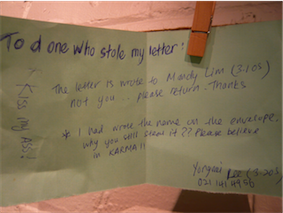 To d one who stole my letter:
The letter is wrote to Mandy Lim (3.105)
not you... please return. Thanks
* I had wrote the name on the envelope.
why you still steal it?? Please believe
in KARMA!!
Kiss my ASS!
Yongwai Lee (3.205)